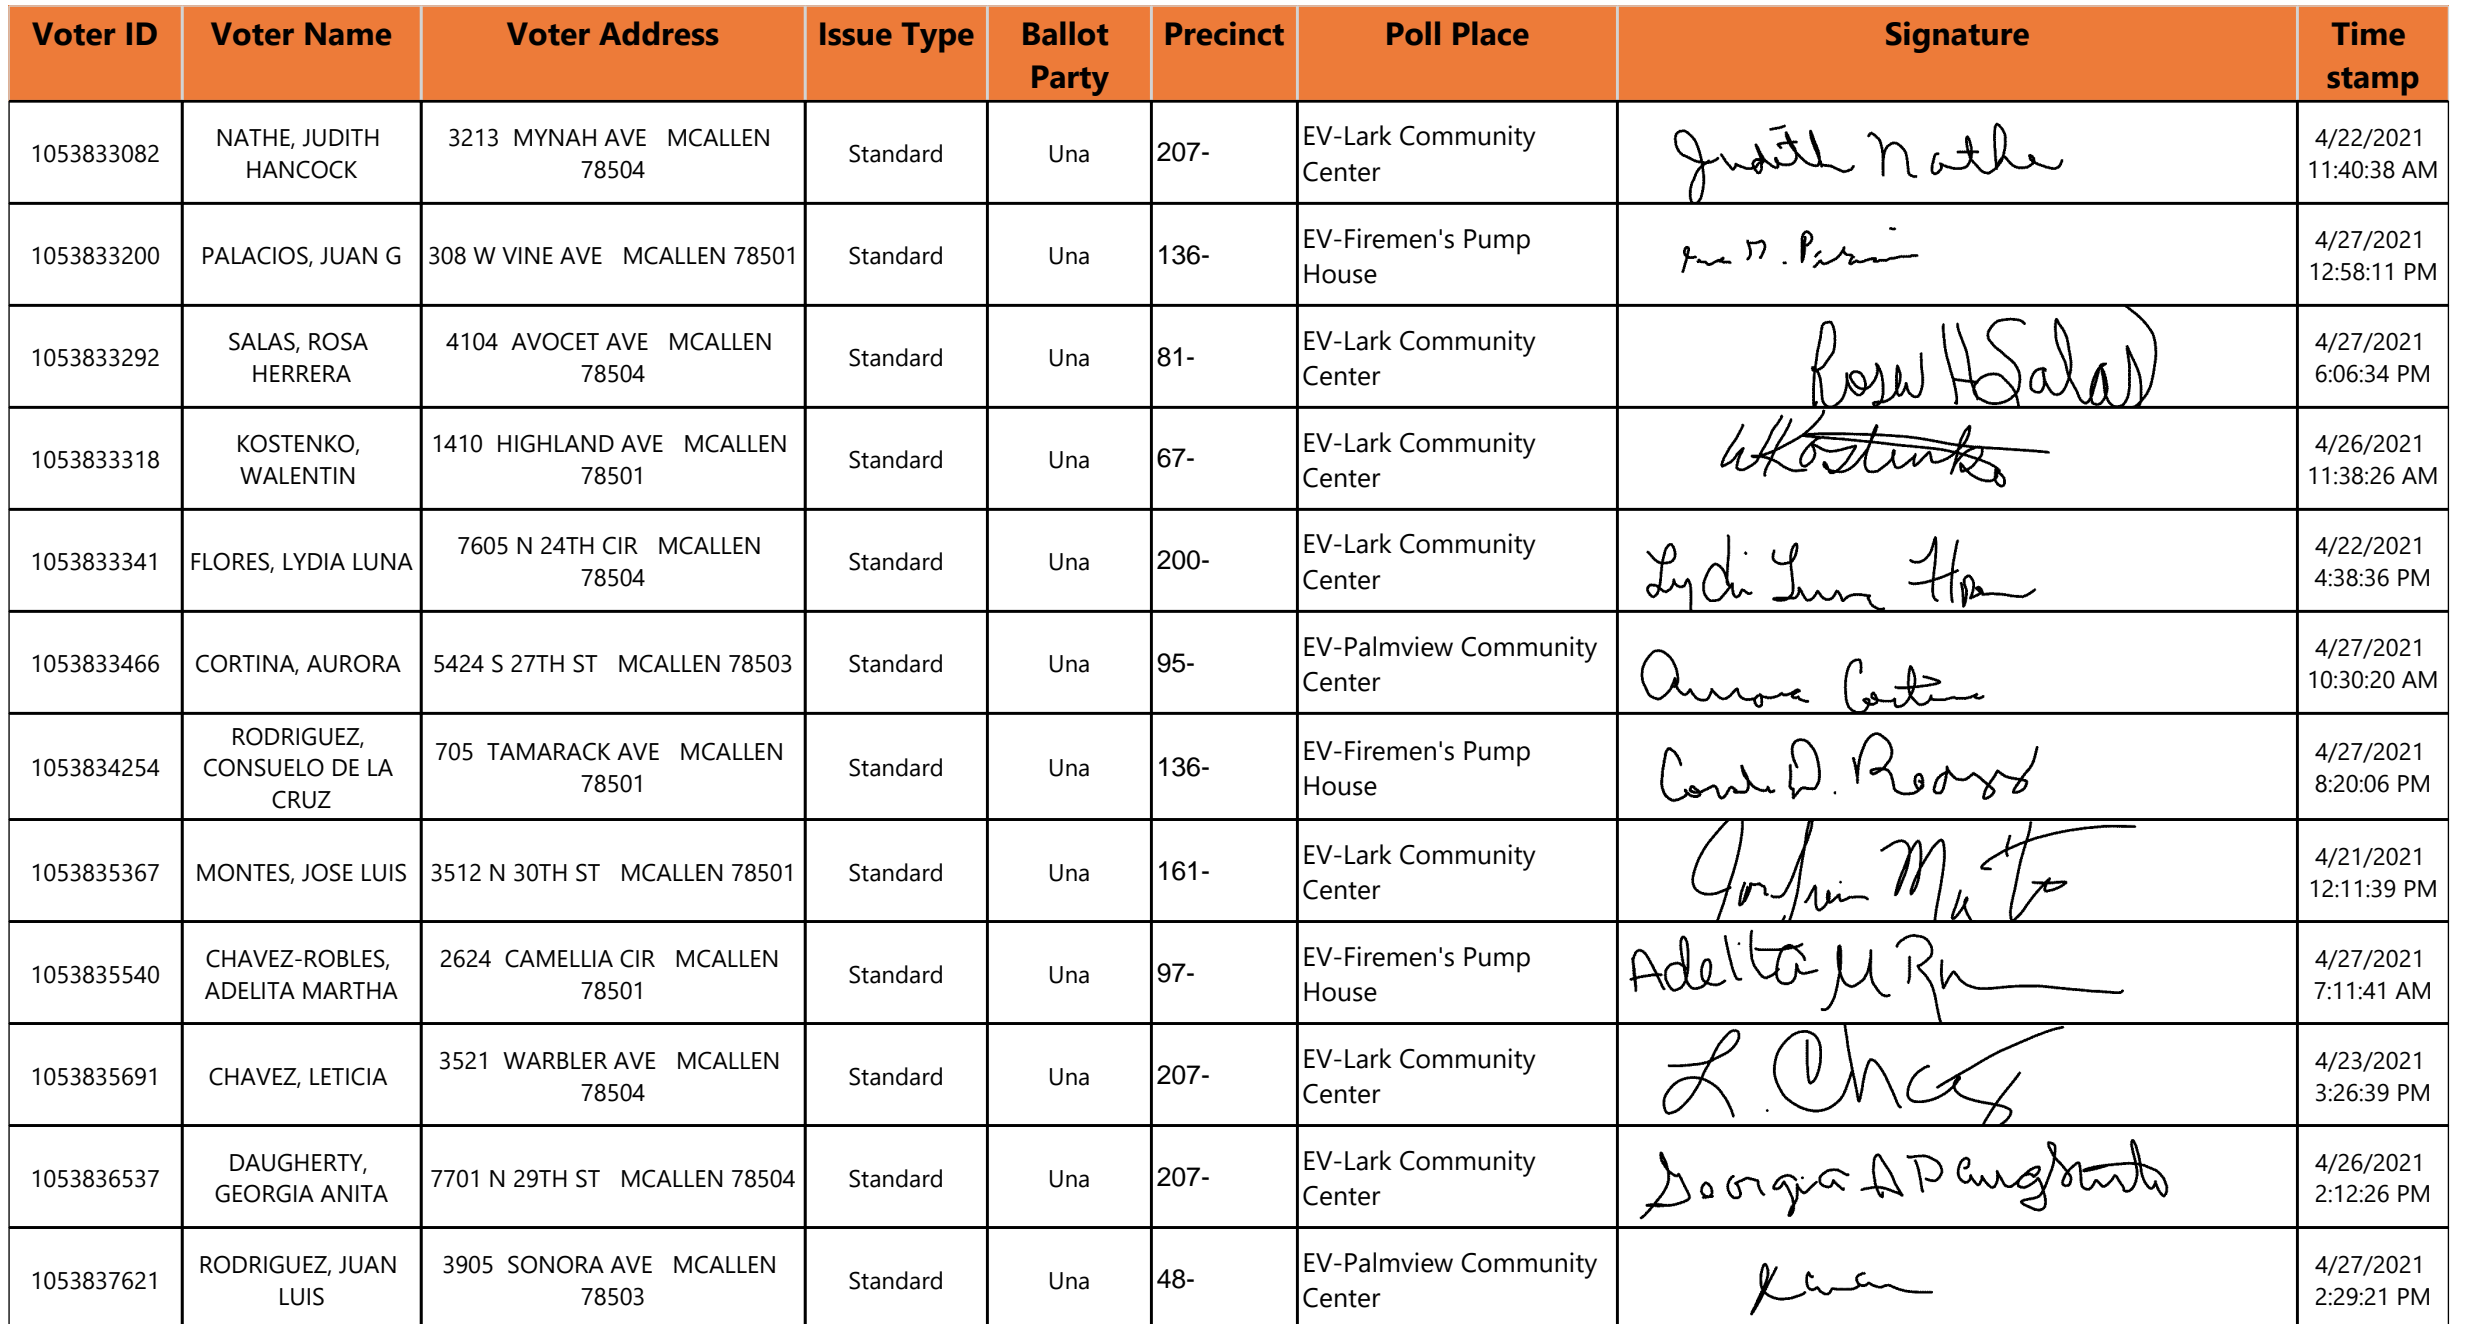 Voter ID Voter Name Voter Address Issue Type Ballot Party Precinct Poll Place Signature Time stamp
1053833082 NATHE, JUDITH HANCOCK 3213 MYNAH AVE MCALLEN 78504 Standard Una 207- EV-Lark Community Center Judith Nathe 4/22/2021 11:40:38 AM
1053833200 PALACIOS, JUAN G 308 W VINE AVE MCALLEN 78501 Standard Una 136- EV-Firemen's Pump House 4/27/2021 12:58:11 PM
1053833292 SALAS, ROSA HERRERA 4104 AVOCET AVE MCALLEN 78504 Standard Una 81- EV-Lark Community Center Rosa H Salas 4/27/2021 6:06:34 PM
1053833318 KOSTENKO, WALENTIN 1410 HIGHLAND AVE MCALLEN 78501 Standard Una 67- EV-Lark Community Center WKostenko 4/26/2021 11:38:26 AM
1053833341 FLORES, LYDIA LUNA 7605 N 24TH CIR MCALLEN 78504 Standard Una 200- EV-Lark Community Center 4/22/2021 4:38:36 PM
1053833466 CORTINA, AURORA 5424 S 27TH ST MCALLEN 78503 Standard Una 95- EV-Palmview Community Center Aurora Cortina 4/27/2021 10:30:20 AM
1053834254 RODRIGUEZ, CONSUELO DE LA CRUZ 705 TAMARACK AVE MCALLEN 78501 Standard Una 136- EV-Firemen's Pump House 4/27/2021 8:20:06 PM
1053835367 MONTES, JOSE LUIS 3512 N 30TH ST MCALLEN 78501 Standard Una 161- EV-Lark Community Center 4/21/2021 12:11:39 PM
1053835540 CHAVEZ-ROBLES, ADELITA MARTHA 2624 CAMELLIA CIR MCALLEN 78501 Standard Una 97- EV-Firemen's Pump House Adelita M 4/27/2021 7:11:41 AM
1053835691 CHAVEZ, LETICIA 3521 WARBLER AVE MCALLEN 78504 Standard Una 207- EV-Lark Community Center L. 4/23/2021 3:26:39 PM
1053836537 DAUGHERTY, GEORGIA ANITA 7701 N 29TH ST MCALLEN 78504 Standard Una 207- EV-Lark Community Center Georgia A Daugherty 4/26/2021 2:12:26 PM
1053837621 RODRIGUEZ, JUAN LUIS 3905 SONORA AVE MCALLEN 78503 Standard Una 48- EV-Palmview Community Center 4/27/2021 2:29:21 PM